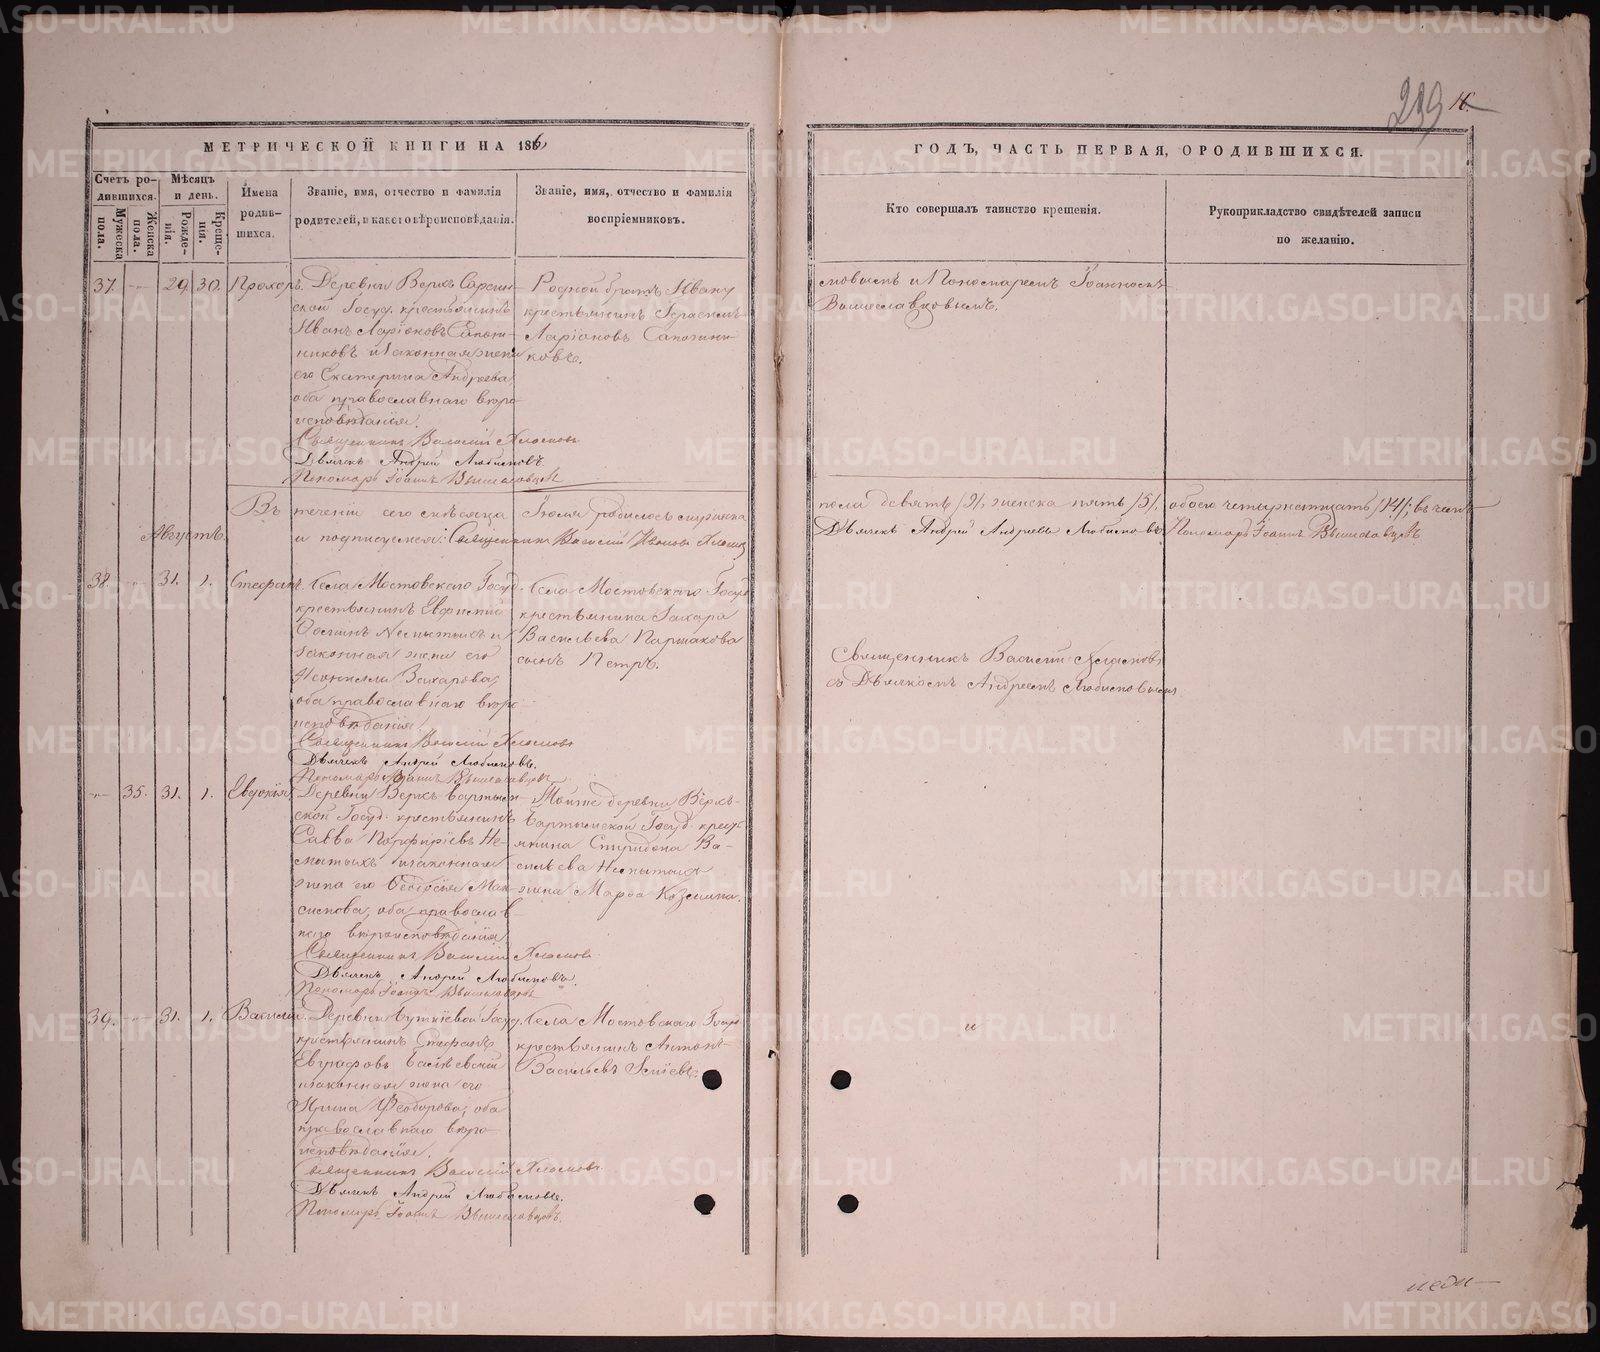 239 16.
МЕТРИЧЕСКОЙ КНИГИ НА 186
ГОДЪ, ЧАСТЬ ПЕРВАЯ, О РОДИВШИХСЯ.
Счетъ родившихся.
Мужеска пола.
Женска пола.
Мѣсяцъ и день.
Рожденія.
Крещенія.
Имена родившихся.
Званіе, имя, отчество и фамилія
родителей, и какого вѣроисповѣданія.
Званіе, имя, отчество и фамилія
воспріемниковъ.
Кто совершалъ таинство крещенія.
Рукоприкладство свидѣтелей записи
по желанію.
37. 29. 30. Прохоръ.
Деревни Верхъ
ской Госуд. крестьянинъ
Иванъ Ларіоновъ Сапож-
никовъ и законная жена
его Екатерина Андреева
оба православнаго вѣро-
исповѣданія.
Священникъ Василій Хламовъ
Дьячекъ Андрей Любимовъ.
Пономарь Іоаннъ Вышеславцевъ
Родной братъ Ивану
крестьянинъ Герасимъ
Ларіоновъ Сапожни-
ковъ.
мовымъ и Пономаремъ Іоанномъ
Вышеславцовымъ.
Въ теченіи сего мѣсяца Іюля родилось мужеска
пола девять /9/, женска пять /5/, обоего четырнатцать /14/; въ чемъ
и подписуемся: Священникъ Василій Ивановъ Хламовъ
Дьячекъ Андрей Андреевъ Любимовъ Пономарь Іоаннъ Вышеславцевъ
Августъ.
38. 31. 1. Стефанъ.
Села Мостовскаго Госуд.
крестьянинъ Евфимій
законная жена его
Захарова,
оба православнаго вѣро-
исповѣданія.
Священникъ Василій Хламовъ
Дьячекъ Андрей Любимовъ.
Пономарь Іоаннъ Вышеславцевъ
Села Мостовскаго Госуд.
крестьянина Захара
Васильева Паршакова
сынъ Петръ.
Священникъ Василій Хламовъ
съ Дьячкомъ Андреемъ Любимовымъ
35. 31. 1. Евдокія.
Деревни Верхъ
ской Госуд. крестьянинъ
Савва Порфирьевъ Не-
пытыхъ и законная
жена его Феодосія Мак-
симова, оба православ-
наго вѣроисповѣданія
Священникъ Василій Хламовъ
Дьячекъ Андрей Любимовъ.
Пономарь Іоаннъ Вышеславцевъ
Тойже деревни Верхъ-
Госуд. крест-
янина Спиридона Ва-
сильева Непытыхъ
жена Марѳа Козмина.
39. 31. 1. Василій.
Деревни Госуд.
крестьянинъ Стефанъ
Евграфовъ
и законная жена его
Ирина Феодорова, оба
православнаго вѣро-
исповѣданія.
Священникъ Василій Хламовъ
Дьячекъ Андрей Любимовъ.
Пономарь Іоаннъ Вышеславцевъ.
Села Мостовскаго Госуд.
крестьянинъ Антонъ
Васильевъ
METRIKI.GASO-URAL.RU